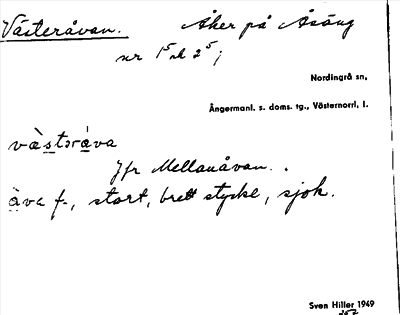 Västeråvan. Åker på Åsäng
nr 1⁵ ok 2⁵;
Nordingrå sn,
Ångermanl. s. doms. tg., Västernorrl. l.
væ̀stəråva
Jfr Mellanåvan.
åva f., stort, brett stycke, sjok.
Sven Hiller 1949